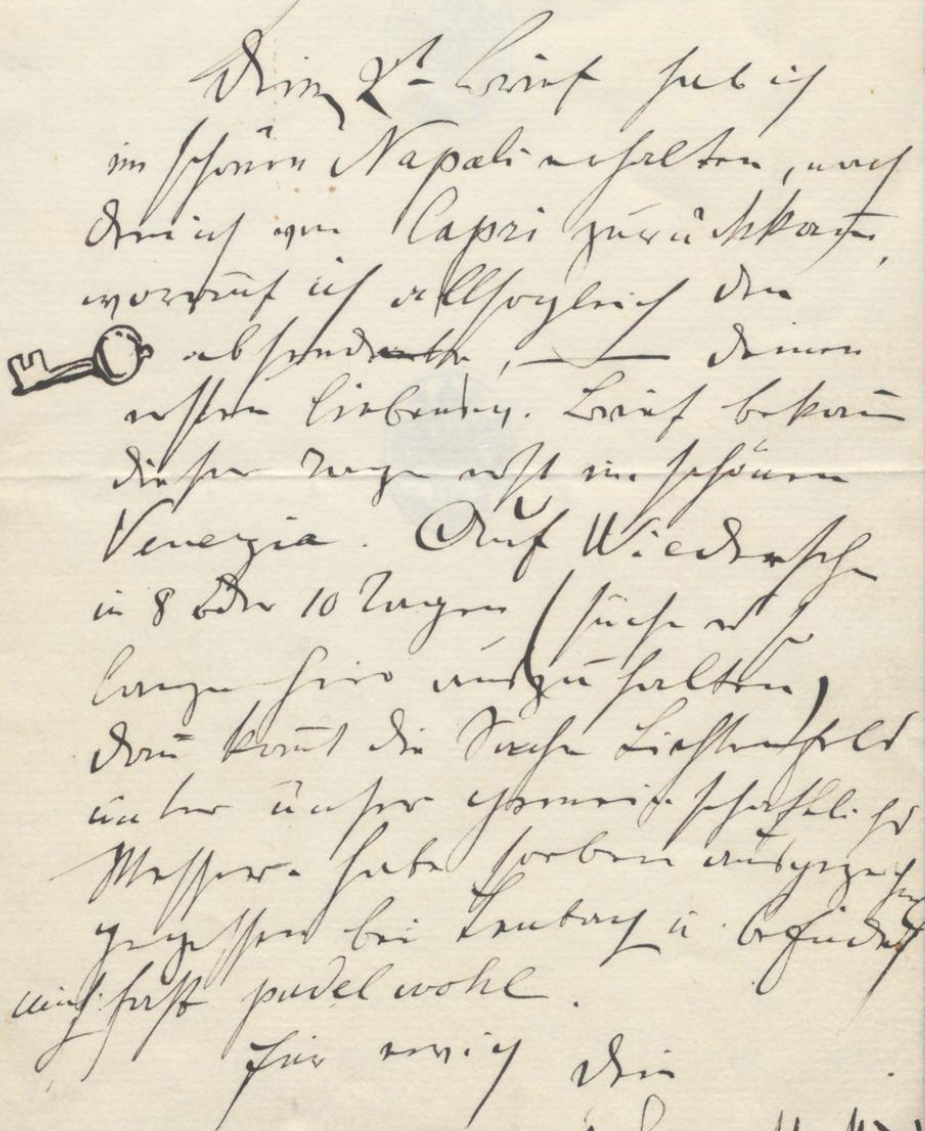 Dein 2t Brief hab ich
im schönen Napoli erhalten, nach
dem ich von Capri zurückkam̄,
worauf ich allsogleich den
absendete, — deinen
ersten liebensw. Brief bekam̄
dieser Tage erst im schönen
Venezia. Auf Wiedersehn
in 8 oder 10 Tagen (suche es so
lange hier auszuhalten)
dan̄ kom̄t die Sache Lichtenfeld
unter unser gemeinschaftliches
Messer. habe soeben ausgezeichnet
gegessen bei Lenbach u. befinde
mich fast pudelwohl.
Für ewig Dein